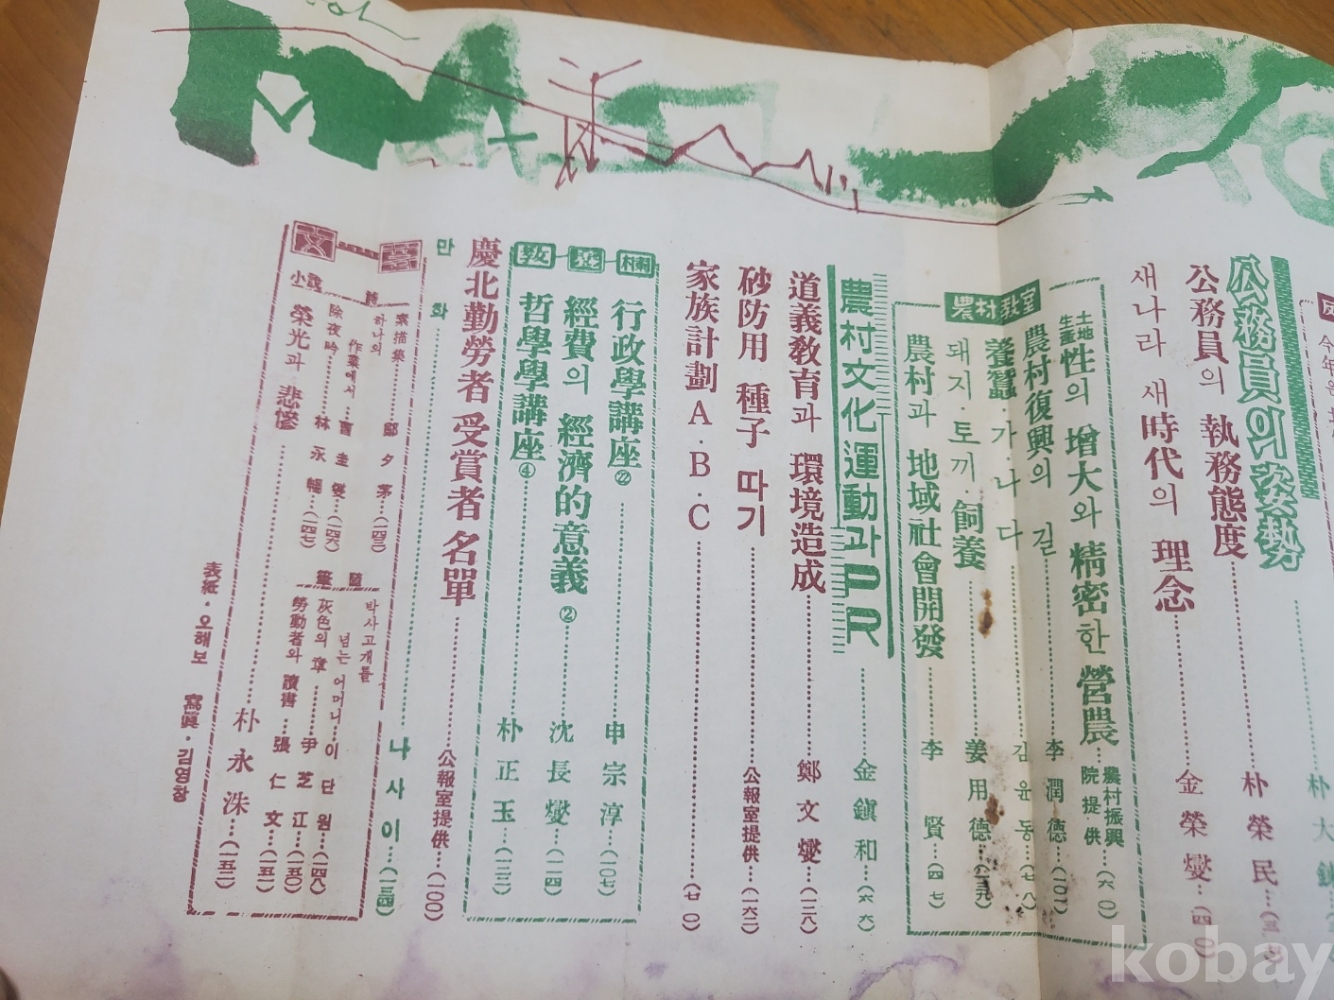 公務員의 姿勢
公務員의 執務態度……朴榮民
새나라 새時代의 理念……金榮燮…(四〇)
農村教室
土地生産性의 增大와 精密한 營農…農村振興院提供…(六〇)
農村復興의 길 李潤德…(一〇二)
養蠶 가나다 김윤동…(七八)
돼지·토끼·飼養……姜用德
農村과 地域社會開發……李賢…(四七)
農村文化運動과PR……金鎭和…(六六)
道義教育과 環境造成……鄭文燮…(一二八)
砂防用 種子 따기……公報室提供…(一六二)
家族計劃A·B·C……(七〇)
教養欄
行政學講座②……申宗淳…(一〇七)
經費의 經濟的意義②……沈長燮…(一一四)
哲學學講座④……朴正玉…(一二三)
慶北勤勞者 受賞者 名單……公報室提供…(一〇〇)
만화……나사이…(一三四)
文藝
詩
하나의 素描集……鄭夕茅…(一四三)
作業에서…曺圭燮…(一四六)
除夜吟……林永暢…(一四七)
隨筆
박사고개를 넘는 어머니…이단원…(一四八)
灰色의 章……尹芝江…(一五〇)
勞動者와 讀書…張仁文…(一五一)
小說
榮光과 悲慘……朴永洙…(一五二)
表紙·오해보 寫眞·김영창
kobay